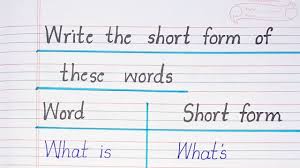 Write the short form of
these words
Word Short form
What is What's